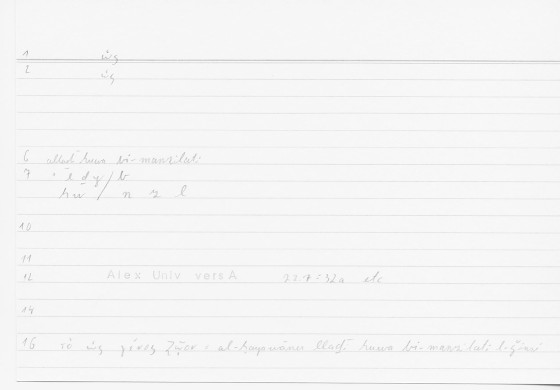 1 ὡς
2 ὡς
6 alladī huwa bi-manzilati
7 ʾ l d y / b
hū / n z l
10
11
12 Alex Univ vers A 227 = 32a etc
14
16 τὸ ὡς γένος ζῷον = al-hayawānu lladī huwa bi-manzilati l-ǧinsi